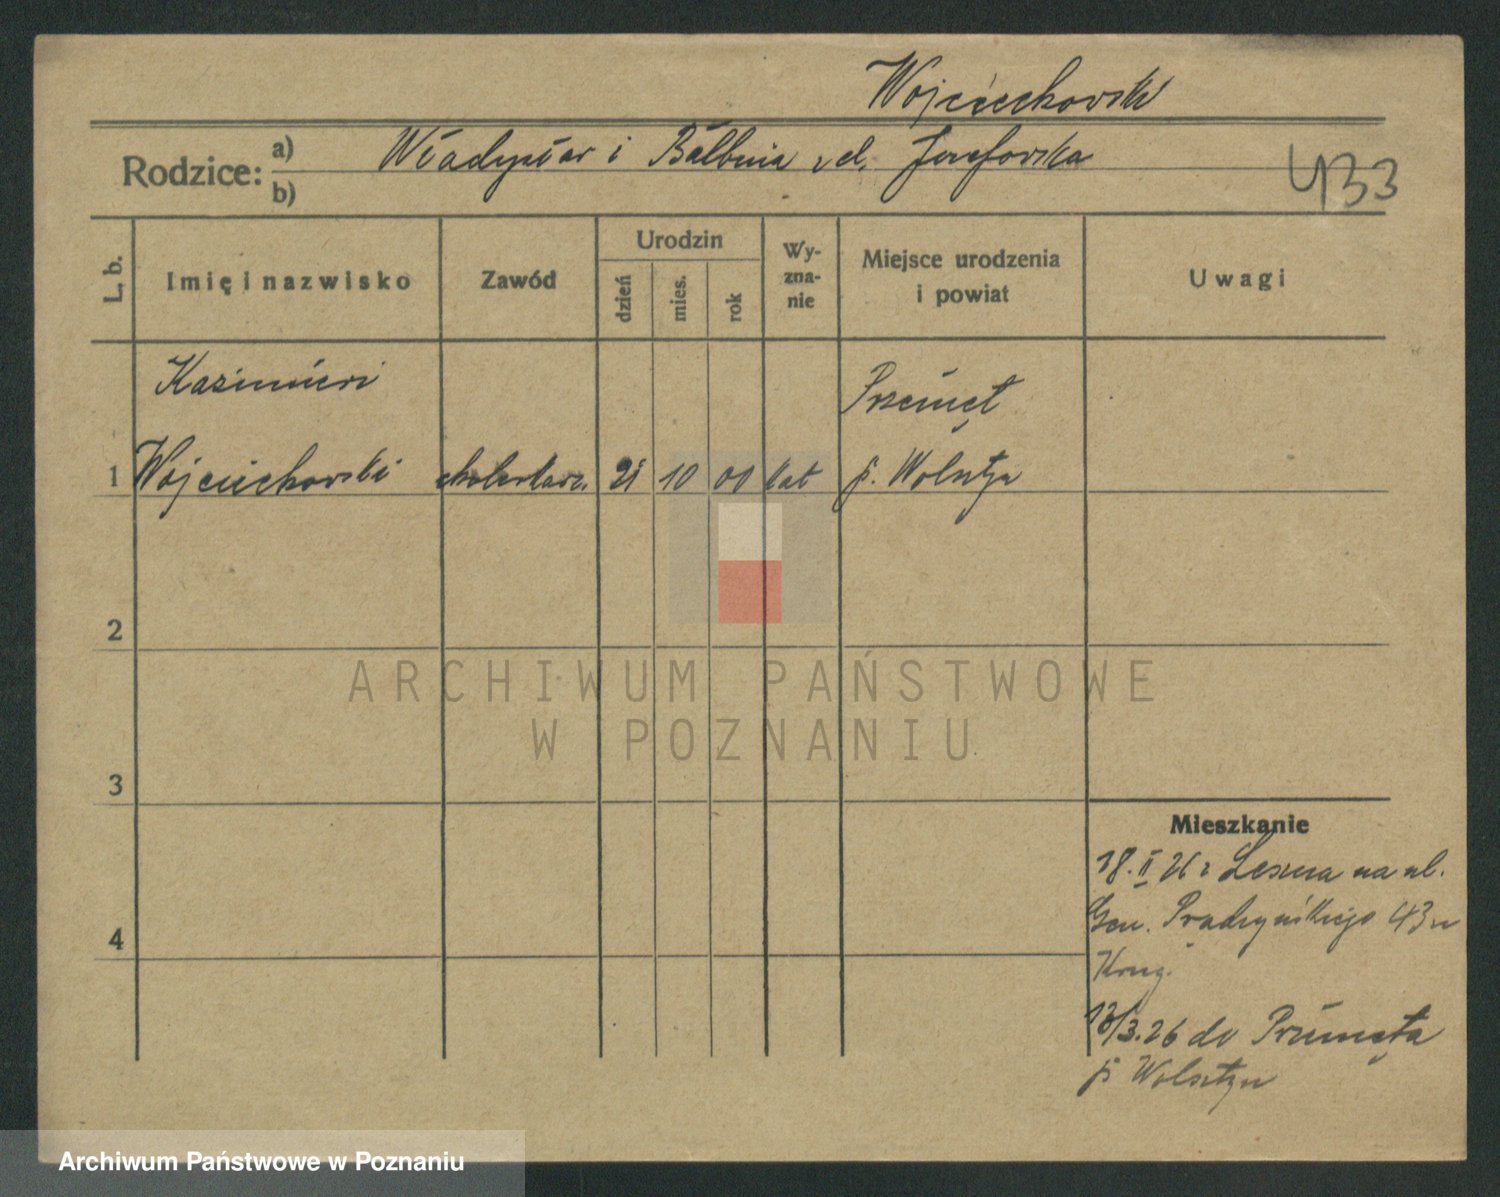 Wojciechowski
Rodzice: a) Władysław i Balbina z d. Józefowska
b)
433
L. b.
Imię i nazwisko
Zawód
Urodzin
dzień
mies.
rok
Wy-
zna-
nie
Miejsce urodzenia
i powiat
Uwagi
Kazimierz
Przemęt
1 Wojciechowski 21 10 00 kat p. Wolsztyn
2
3
4
Mieszkanie
18. II 26 z Leszna na ul.
Gen. Prądzyńskiego 43 u
/3.26 do Przemęta
p. Wolsztyn
ARCHIWUM PAŃSTWOWE
W POZNANIU
Archiwum Państwowe w Poznaniu